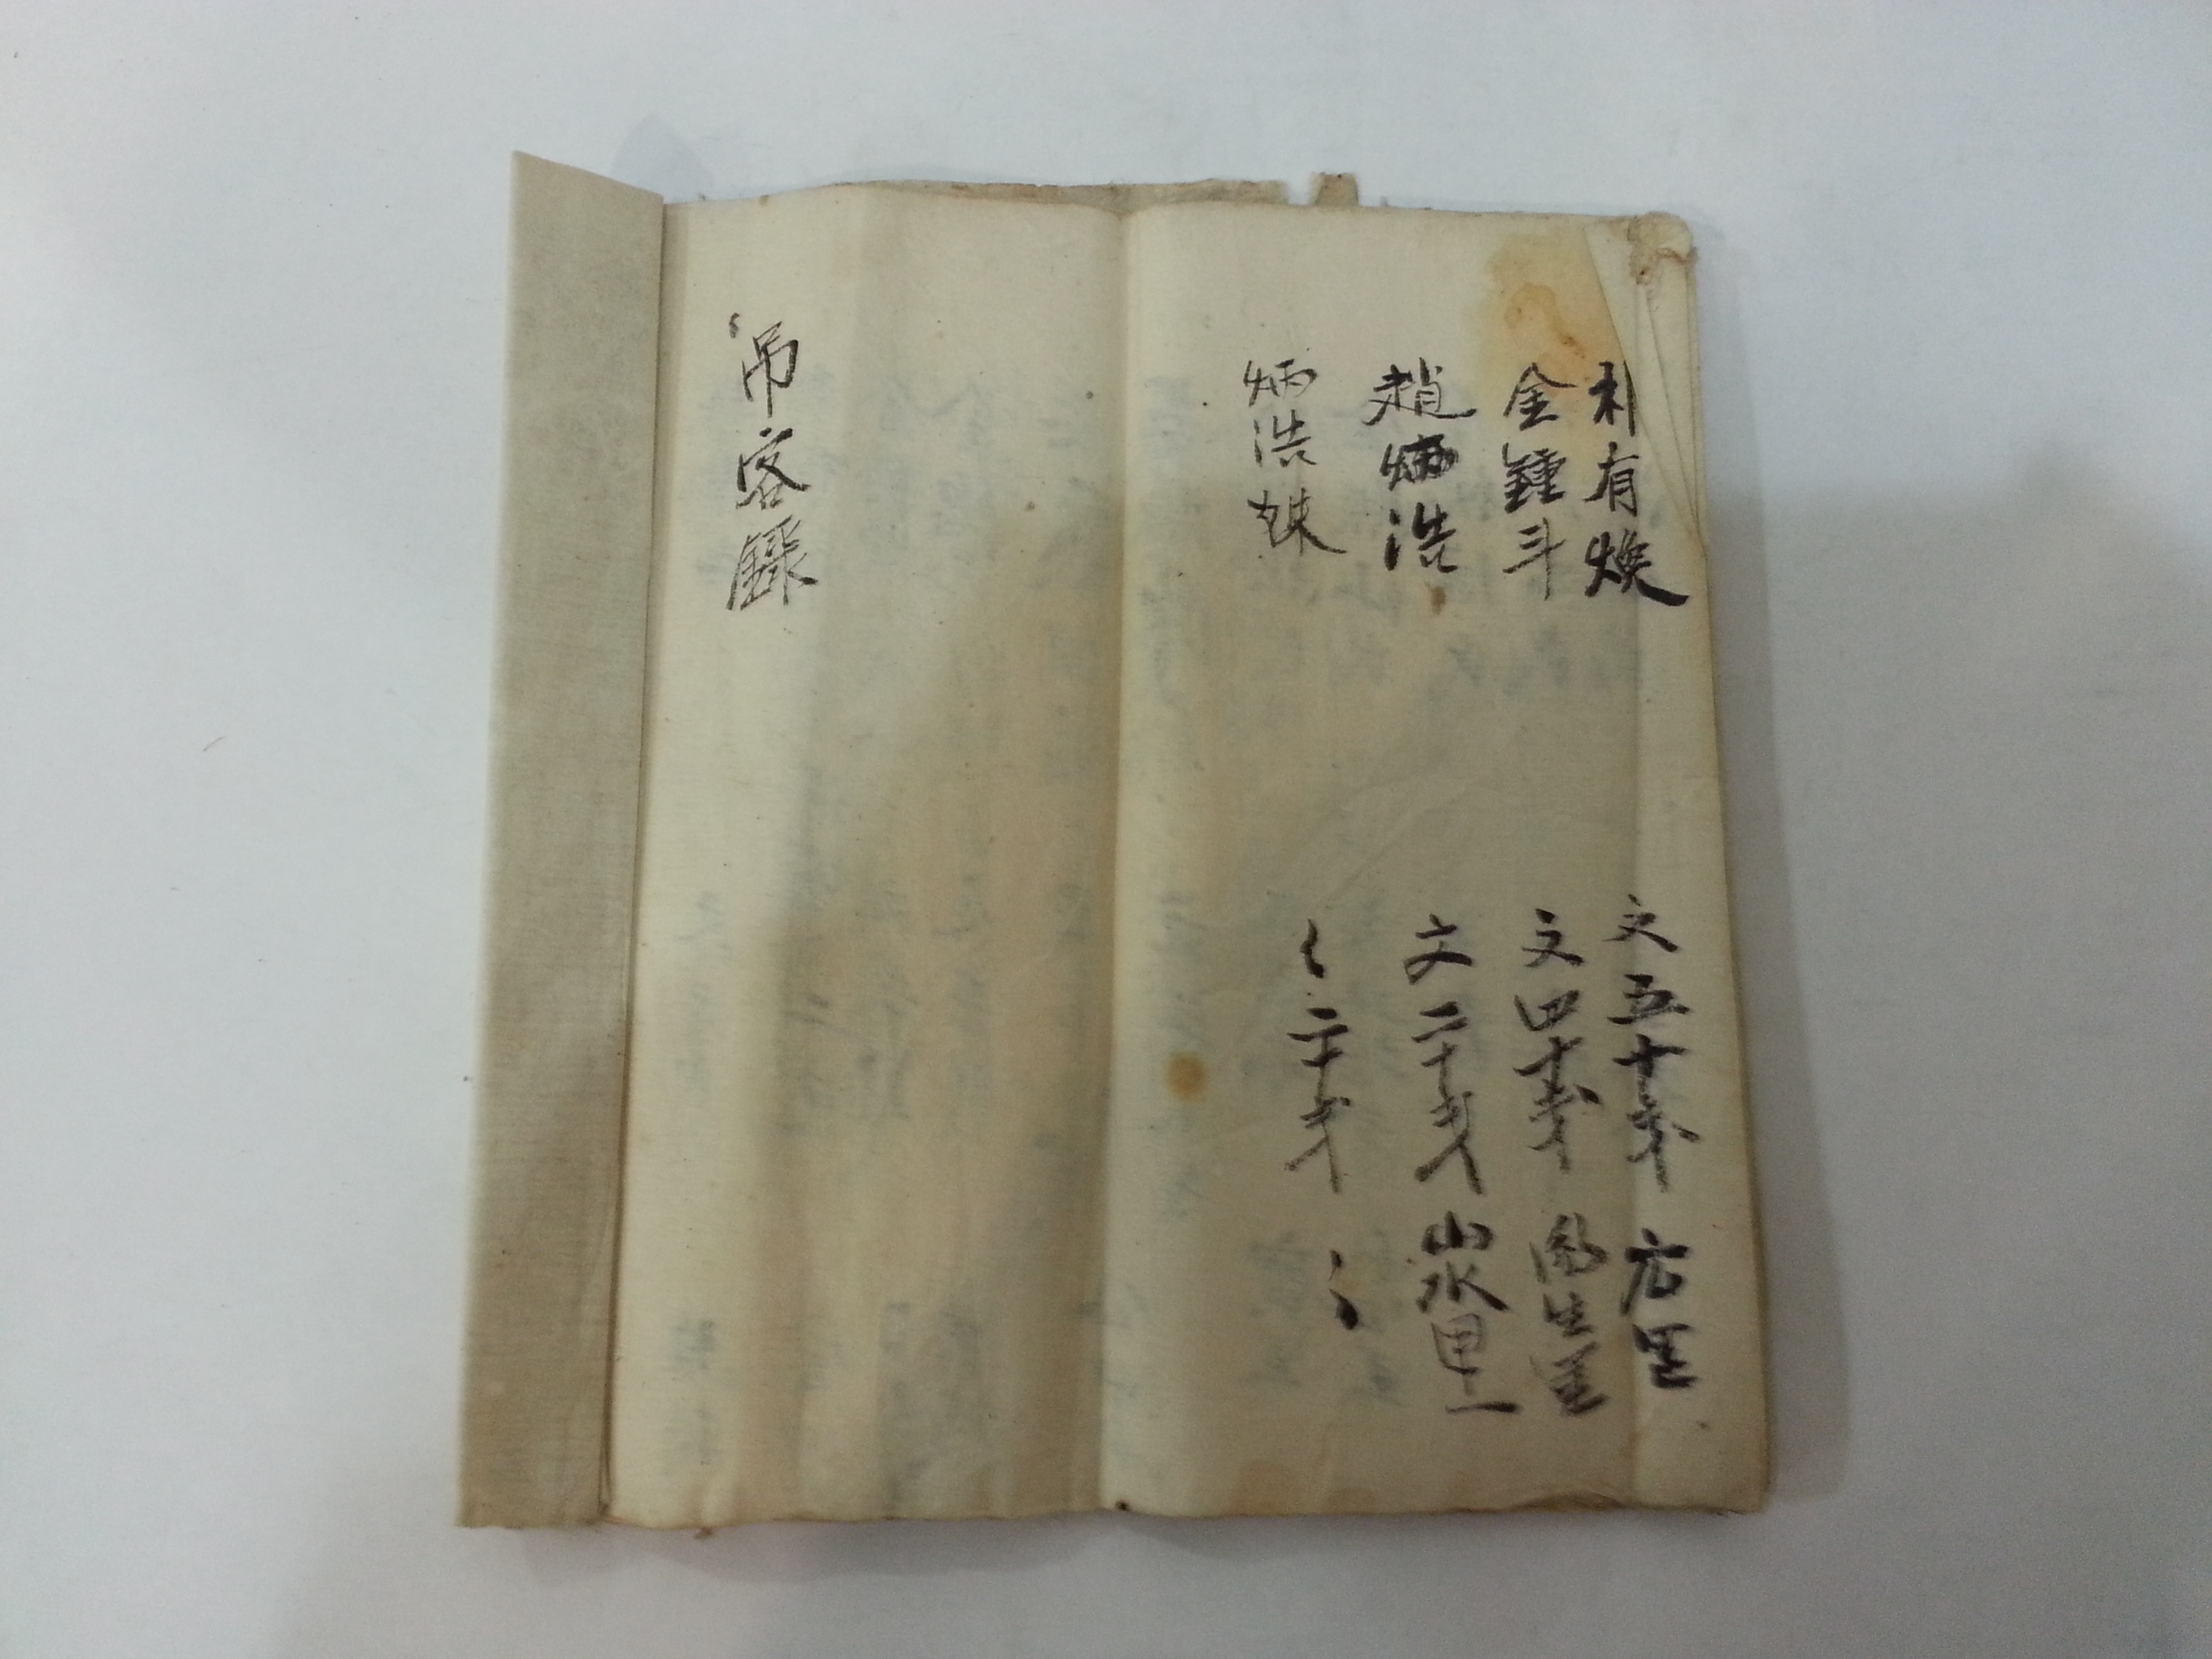 朴有煥 文五十才 方里
金鍾斗 文四十才 生里
趙炳浩 文二十才 山水里
炳浩妹 〻二十才 〻
吊客錄